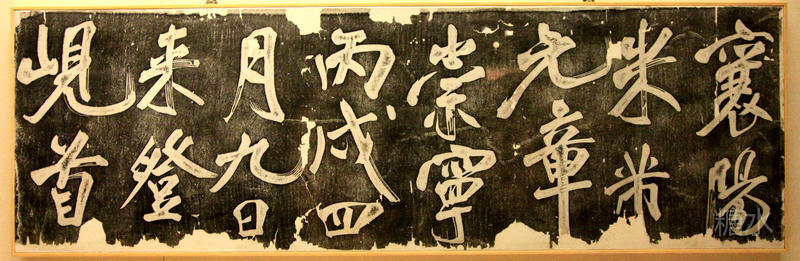 襄陽
米芾
元章
崇寧
丙戌四
月九日
来登
峴首
糖水